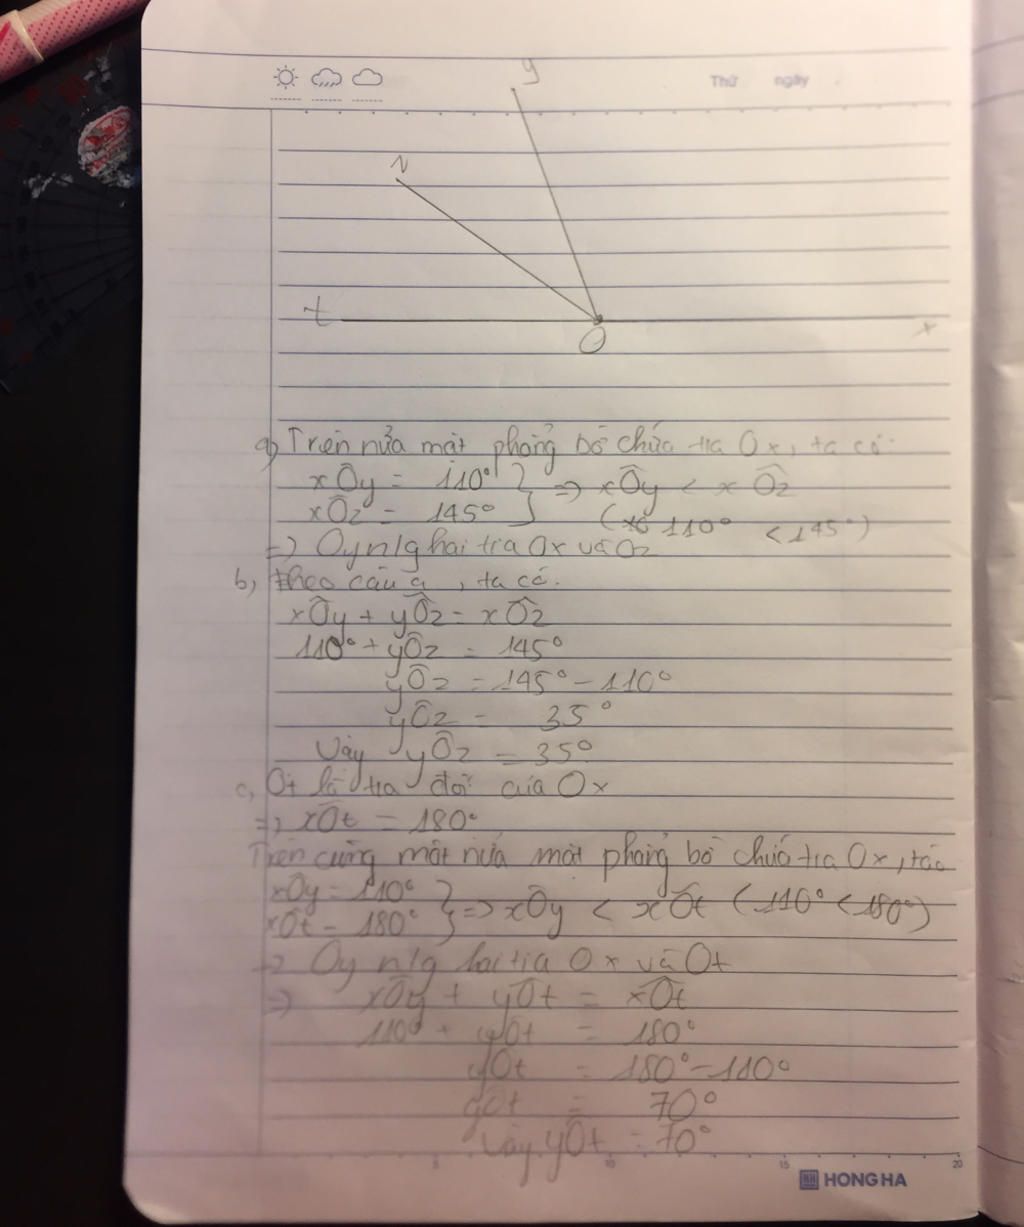 Thứ ngày
y
z
t
O
x
a) Trên nửa mặt phẳng bờ chứa tia Ox, ta có
xÔy = 110° } => xÔy < xÔz
xÔz = 145° } (110° < 145°)
=> Oy n/g hai tia Ox và Oz
b, theo câu a, ta có.
xÔy + yÔz = xÔz
110° + yÔz = 145°
yÔz = 145° - 110°
yÔz = 35°
Vậy yÔz = 35°
c, Ot là tia đối của Ox
=> xÔt = 180°
Trên cùng một nửa mặt phẳng bờ chứa tia Ox, ta có
xÔy = 110° } => xÔy < xÔt (110° < 180°)
xÔt = 180° }
=> Oy n/g hai tia Ox và Ot
=> xÔy + yÔt = xÔt
110° + yÔt = 180°
yÔt = 180° - 110°
yÔt = 70°
Vậy yÔt = 70°
5 10 15 20
HONG HA